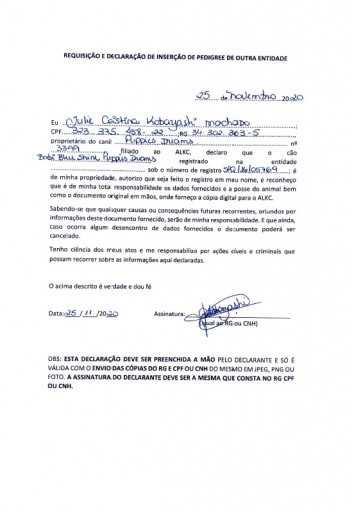 REQUISIÇÃO E DECLARAÇÃO DE INSERÇÃO DE PEDIGREE DE OUTRA ENTIDADE
25 de novembro 2020
Eu Julie Cristina Kobayashi machado
CPF 323.335.458-22 ;RG 34.302.363-5
proprietário do canil Puppies Dreams
3399 filiado ao ALKC, declaro que o cão
Blue Shine Puppies Dreams registrado na entidade
sob o número de registro ; é
de minha propriedade, autorizo que seja feito o registro em meu nome, e reconheço
que é de minha total responsabilidade os dados fornecidos e a posse do animal bem
como o documento original em mãos, onde forneço a cópia digital para o ALKC.
Sabendo-se que quaisquer causas ou consequências futuras recorrentes, oriundos por
informações deste documento fornecido, serão de minha responsabilidade. E que ainda,
caso ocorra algum desencontro de dados fornecidos o documento poderá ser
cancelado.
Tenho ciência dos meus atos e me responsabilizo por ações cíveis e criminais que
possam recorrer sobre as informações aqui declaradas.
O acima descrito é verdade e dou fé
Data: 25 / 11 /2020 Assinatura: Kobayashi
(Igual ao RG ou CNH)
OBS: ESTA DECLARAÇÃO DEVE SER PREENCHIDA A MÃO PELO DECLARANTE E SÓ É
VÁLIDA COM O ENVIO DAS CÓPIAS DO RG E CPF OU CNH DO MESMO EM JPEG, PNG OU
FOTO. A ASSINATURA DO DECLARANTE DEVE SER A MESMA QUE CONSTA NO RG CPF
OU CNH.